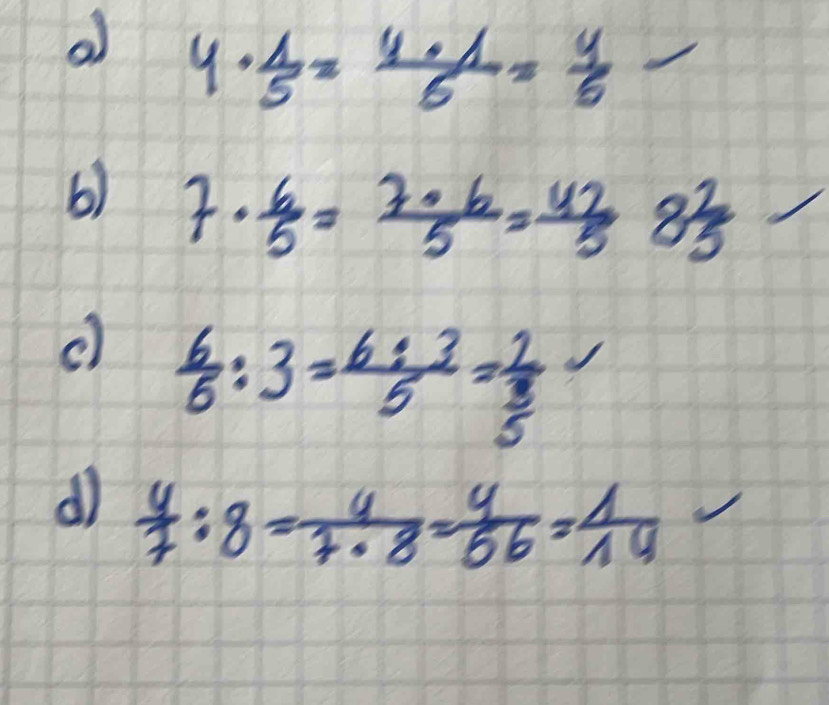 a) 4 · 1/5 = 4 · 1/5 = 4/5 ✓
b) 7 · 6/5 = 7 · 6/5 = 42/5 8 2/5 ✓
c) 6/5 : 3 = 6 : 3/5 = 2/5 ✓
d) 4/7 : 8 = 4/7 · 8 = 4/56 = 1/14 ✓